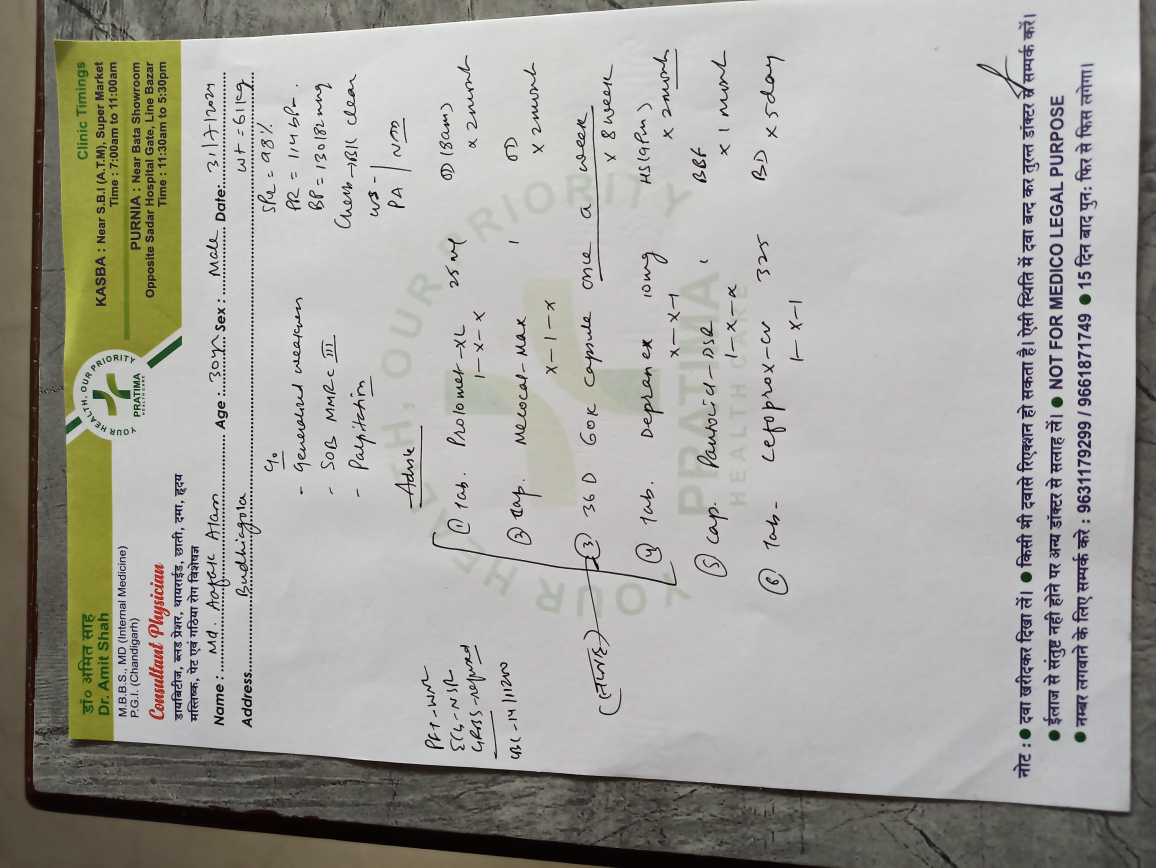 डॉ० अमित साह
Dr. Amit Shah
M.B.B.S., MD (Internal Medicine)
P.G.I. (Chandigarh)
Consultant Physician
डायबिटीज, ब्लड प्रेशर, थायराईड, छाती, दमा, हृदय
मस्तिष्क, पेट एवं गठिया रोग विशेषज्ञ
YOUR HEALTH, OUR PRIORITY
PRATIMA
HEALTHCARE
Clinic Timings
KASBA : Near S.B.I (A.T.M), Super Market
Time : 7:00am to 11:00am
PURNIA : Near Bata Showroom
Opposite Sadar Hospital Gate, Line Bazar
Time : 11:30am to 5:30pm
Name : Md. Alam Age : 30yr Sex : Male Date: 31/7/2024
Address Budhiagola wt = 61kg
C/o
- Generalised weakness
- SOB MMRC III
- Palpitation
SPO2 = 98%
PR = 114 bpm
BP = 130/82mmg
Chest → B/L clear
PA | NM
Advice
PFT - WNL
ECG - NSR
GRBS - refused
① Tab. Prolomet-XL 25 mg OD (8am)
1-x-x x 2month
② Cap. Mecocal-Max 1 OD
x-1-x x 2month
③ 36 D 60K capsule once a week
x 8 week
④ Tab. Depranex 10mg HS (9pm)
x-x-1 x 2month
⑤ Cap. Pantocid-DSR 1 BBF
1-x-x x 1 month
⑥ Tab- Cefoprox-CV 325 BD x 5day
1-x-1
YOUR HEALTH, OUR PRIORITY
PRATIMA
HEALTHCARE
नोट : ● दवा खरीदकर दिखा लें। ● किसी भी दवासे रिएक्शन हो सकता है। ऐसी स्थिति में दवा बन्द कर तुरन्त डॉक्टर से सम्पर्क करें।
● ईलाज से संतुष्ट नही होने पर अन्य डॉक्टर से सलाह लें। ● NOT FOR MEDICO LEGAL PURPOSE
● नम्बर लगवाने के लिए सम्पर्क करे : 9631179299 / 9661871749 ● 15 दिन बाद पुन: फिर से फिस लगेगा।